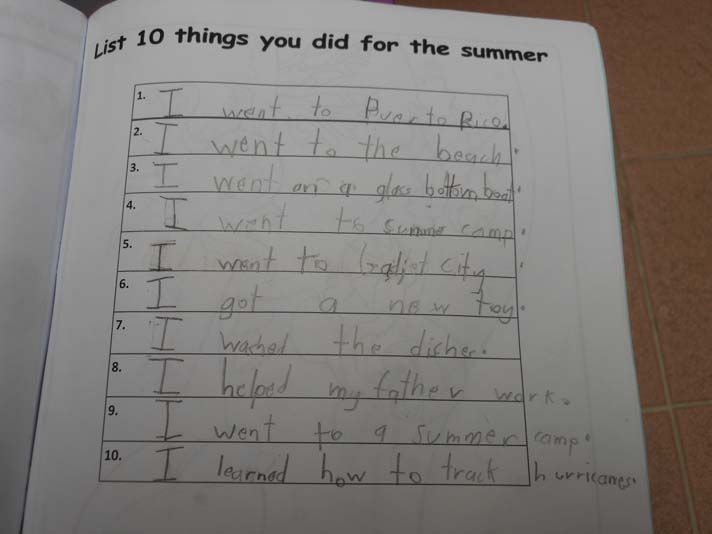 List 10 things you did for the summer
1. I went to Puerto Rico.
2. I went to the beach.
3. I went on a glass bottom boat.
4. I went to summer camp.
5. I went to city.
6. I got a new toy.
7. I wached the dicher.
8. I helped my father work.
9. I went to a summer camp.
10. I learned how to track hurricanes.